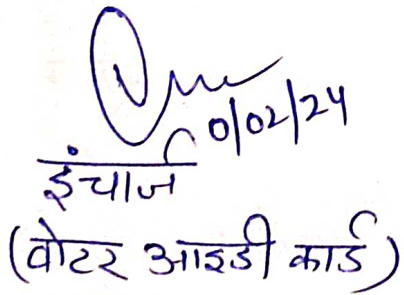 0/02/24
इंचार्ज
(वोटर आइडी कार्ड)